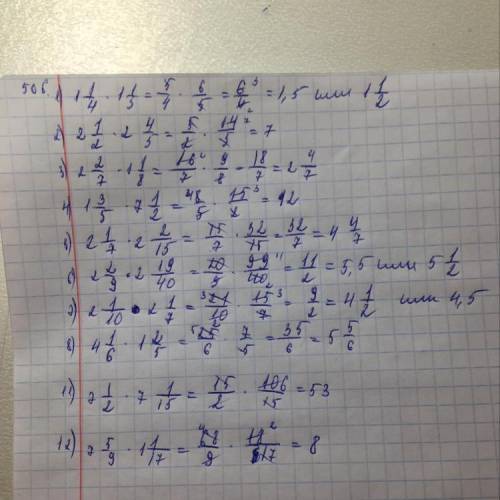 506. 1) 1 1/4 · 1 1/5 = 5/4 · 6/5 = 6³/4 = 1,5 или 1 1/2
2) 2 1/2 · 2 4/5 = 5/2 · 14⁷/5 = 7
3) 2 2/7 · 1 1/8 = 16²/7 · 9/8 = 18/7 = 2 4/7
4) 1 3/5 · 7 1/2 = ⁴8/5 · 15³/2 = 12
5) 2 1/7 · 2 2/15 = 15/7 · 32/15 = 32/7 = 4 4/7
6) 2 2/9 · 2 19/40 = 20/9 · 99¹¹/40 = 11/2 = 5,5 или 5 1/2
7) 2 1/10 · 2 1/7 = ³21/10 · 15³/7 = 9/2 = 4 1/2 или 4,5
8) 4 1/6 · 1 2/5 = ⁵25/6 · 7/5 = 35/6 = 5 5/6
11) 7 1/2 · 7 1/15 = 15/2 · 106/15 = 53
12) 7 5/9 · 1 1/17 = ⁴68/9 · 18²/17 = 8